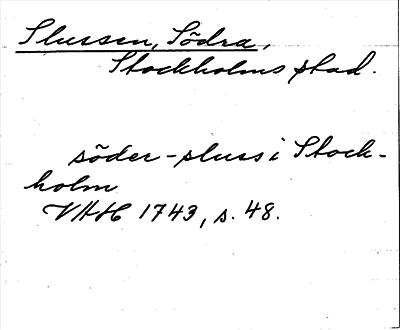 Slussen, Södra,
Stockholms stad.
söder-sluss i Stock-
holm
VHH 1743, s. 48.